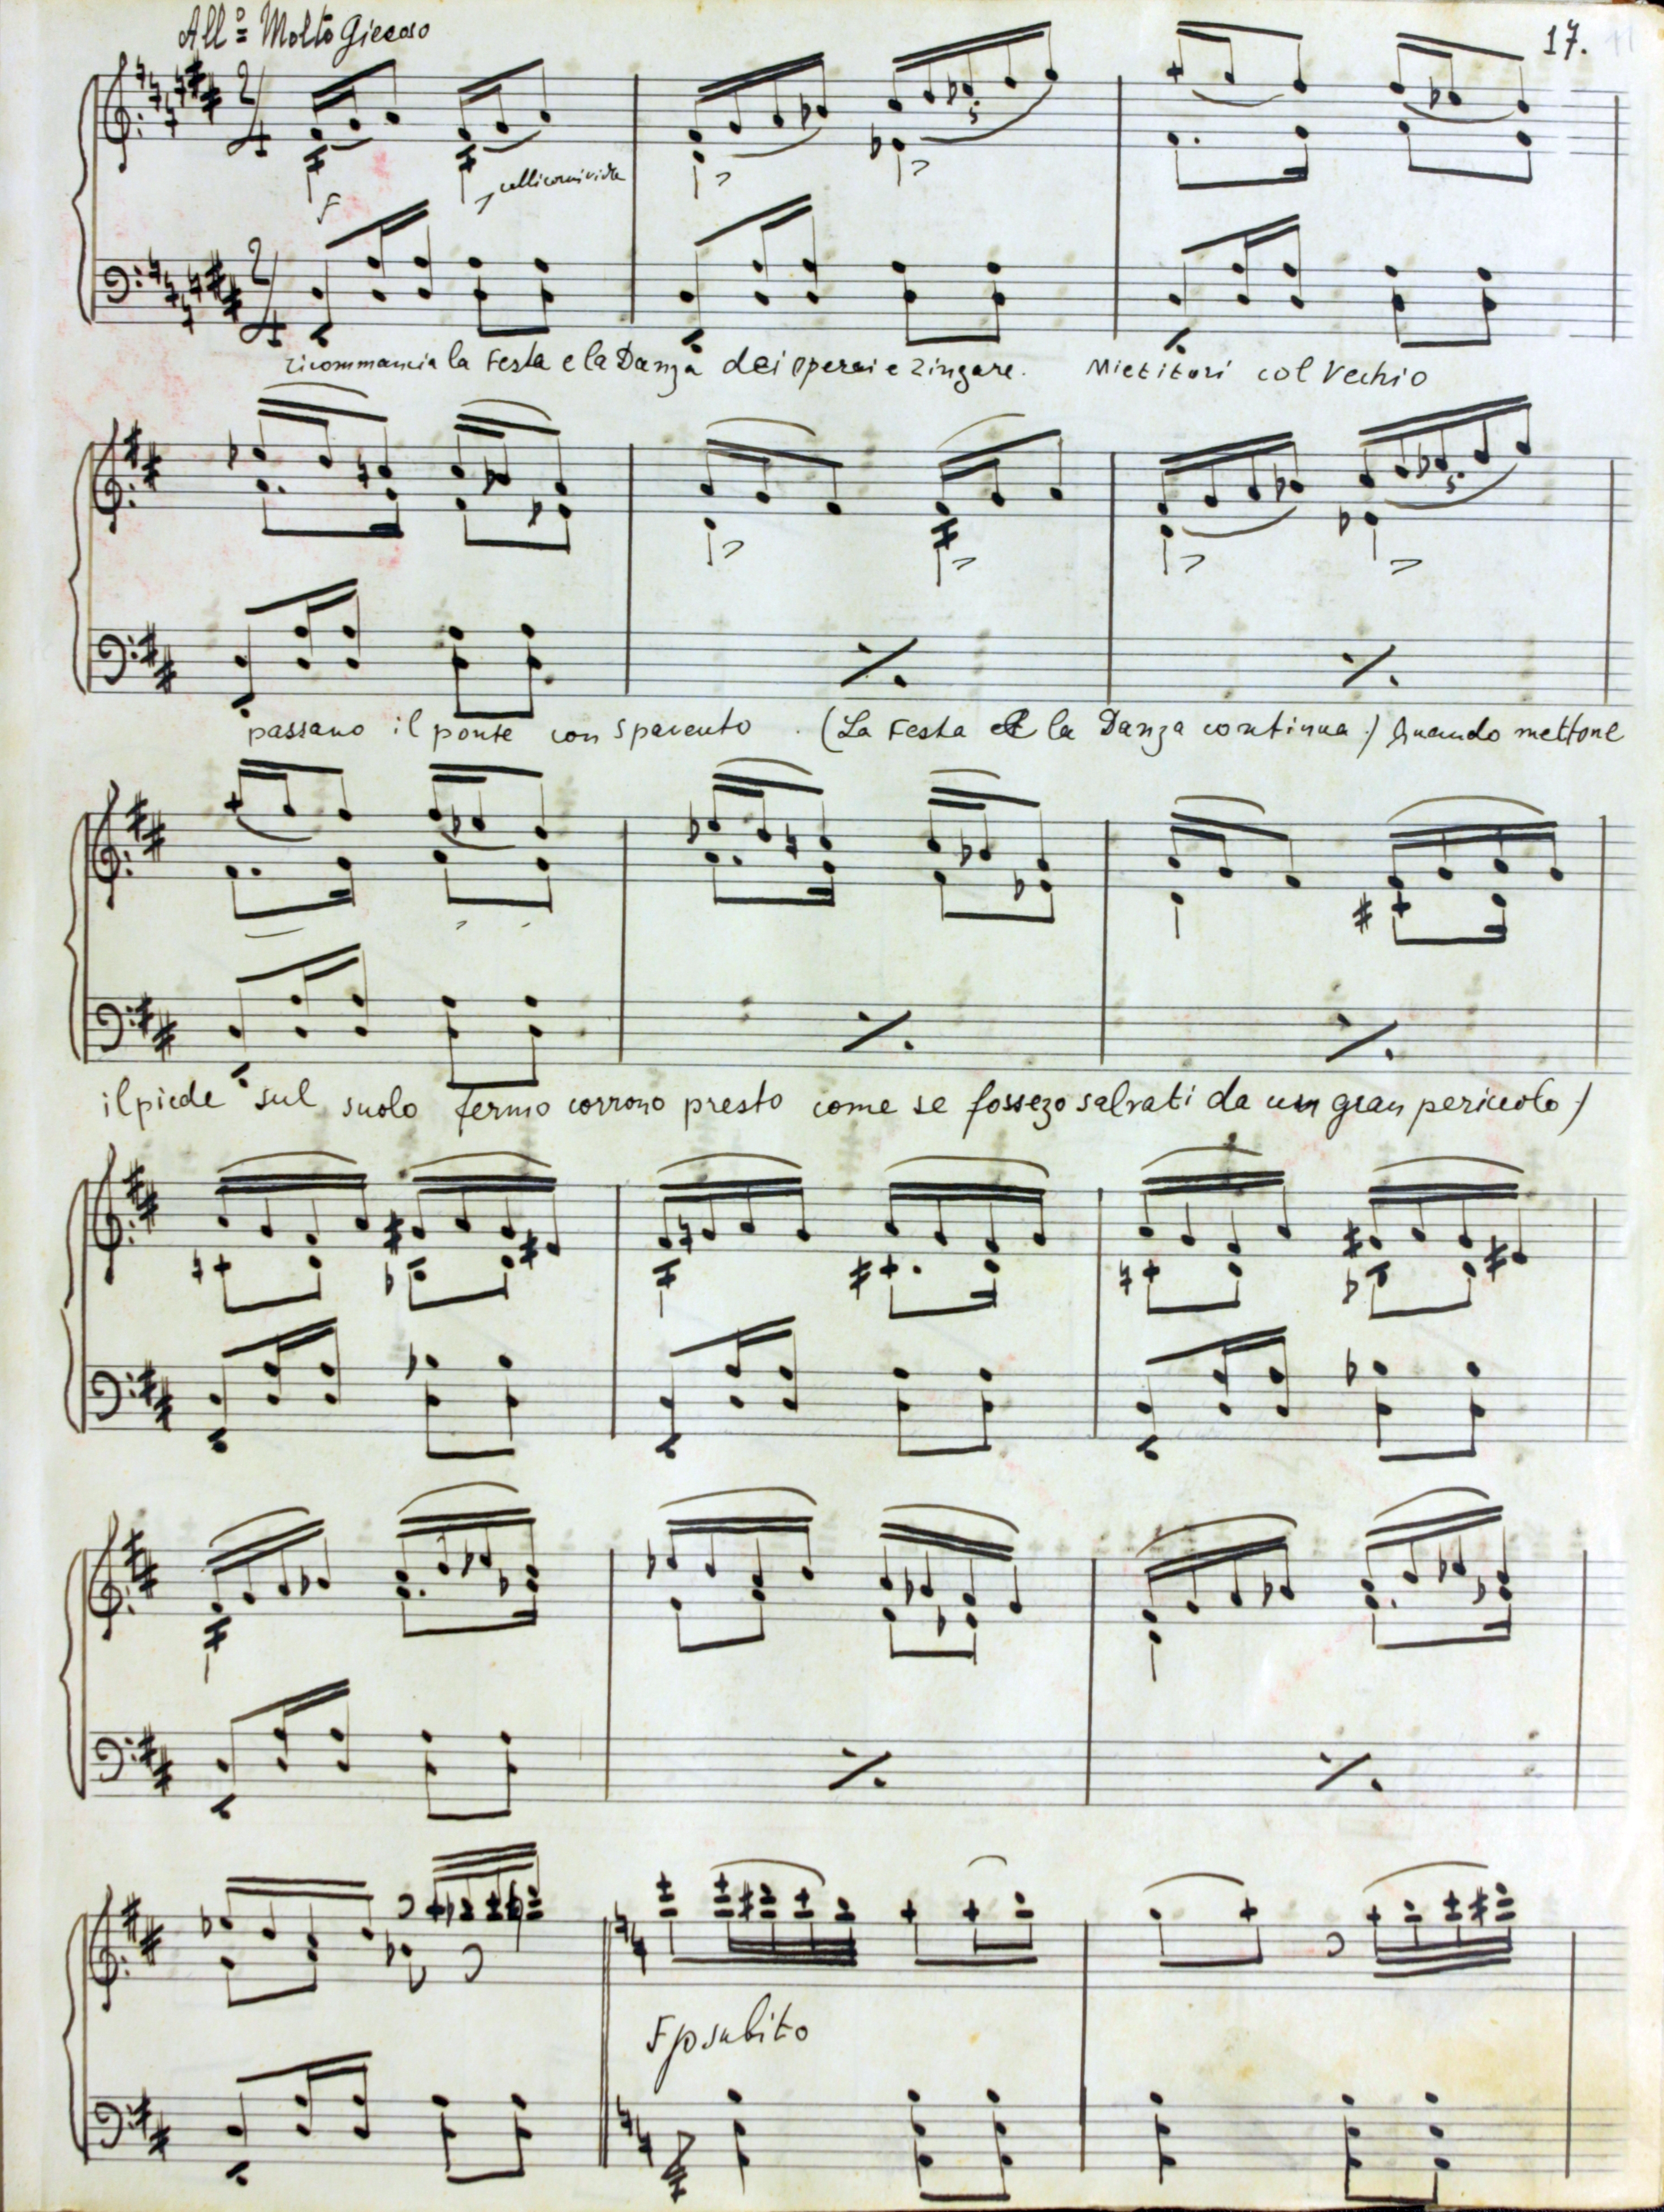 All.º Molto Giocoso 17.
F
ricommancia la Festa e la Danza dei operai e zingare. Mietitori col Vechio
passano il ponte con spavento . (La Festa e la Danza continua.) Quando mettone
il piede sul suolo fermo corrono presto come se fossero salvati da un gran pericolo.)
F p subito